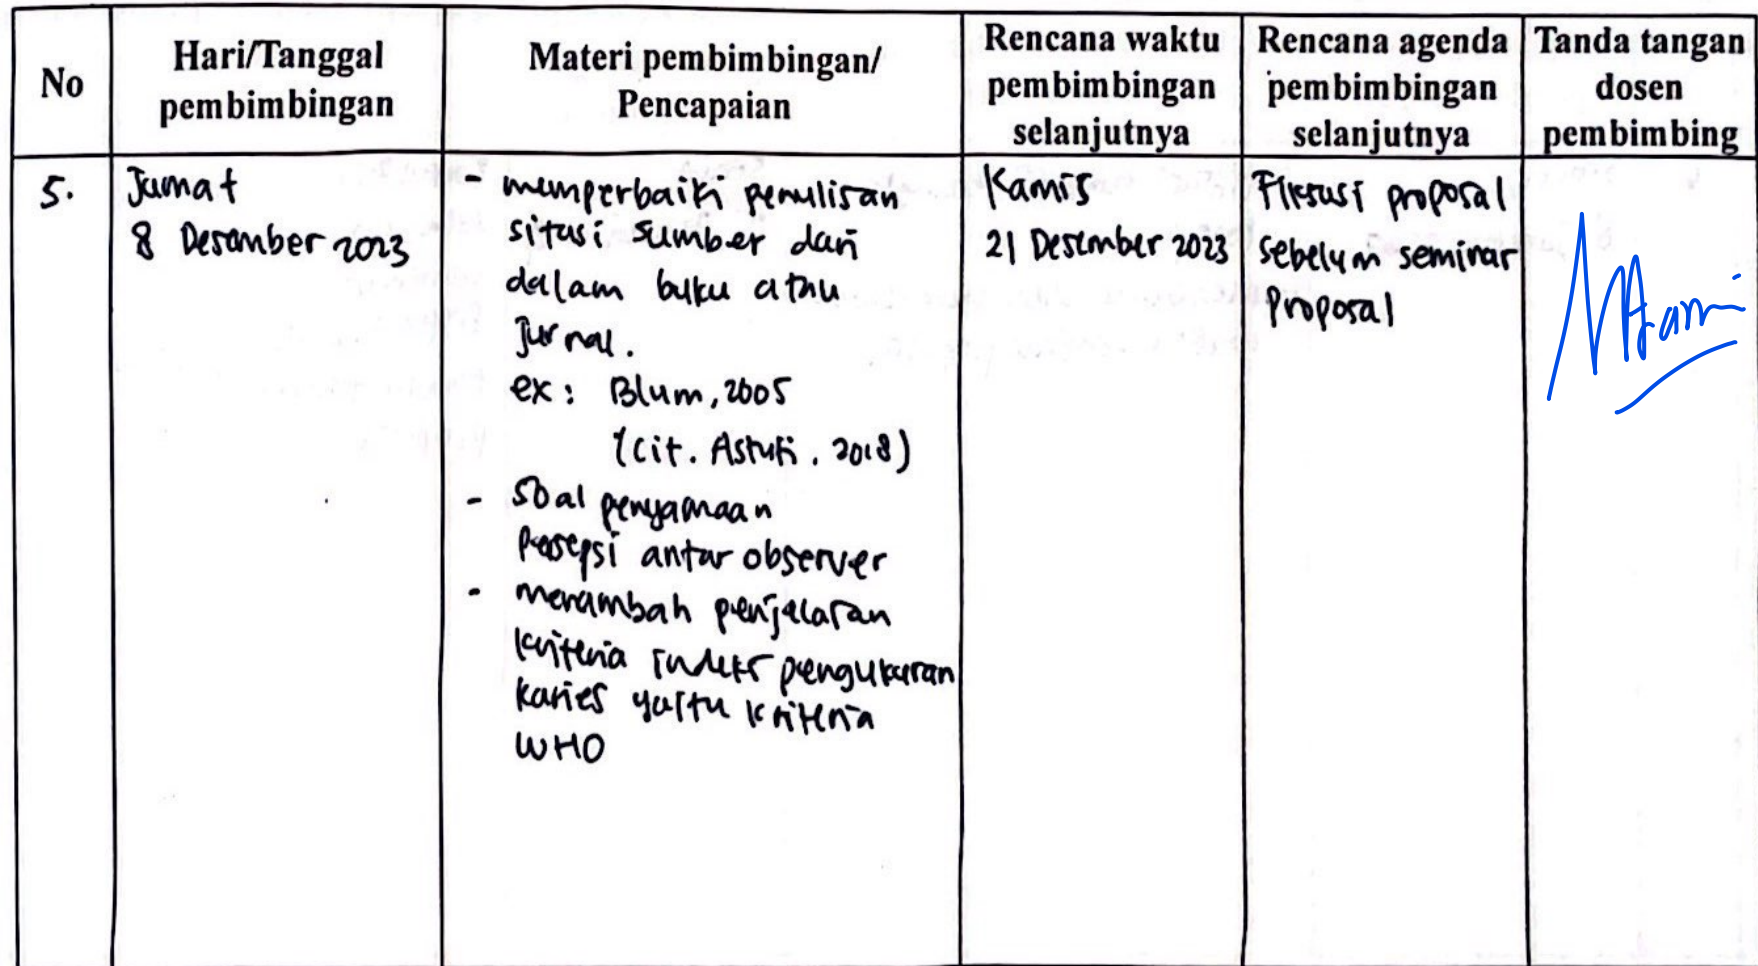 No
Hari/Tanggal
pembimbingan
Materi pembimbingan/
Pencapaian
Rencana waktu
pembimbingan
selanjutnya
Rencana agenda
pembimbingan
selanjutnya
Tanda tangan
dosen
pembimbing
5.
Jumat
8 Desember 2023
- memperbaiki penulisan
situsi sumber dari
dalam buku atau
Jurnal.
ex: Blum, 2005
(cit. Astuti. 2018)
- Soal penyamaan
Persepsi antar observer
- menambah penjelasan
kriteria indeks pengukuran
karies yaitu kriteria
WHO
Kamis
21 Desember 2023
Fiksasi proposal
sebelum seminar
proposal